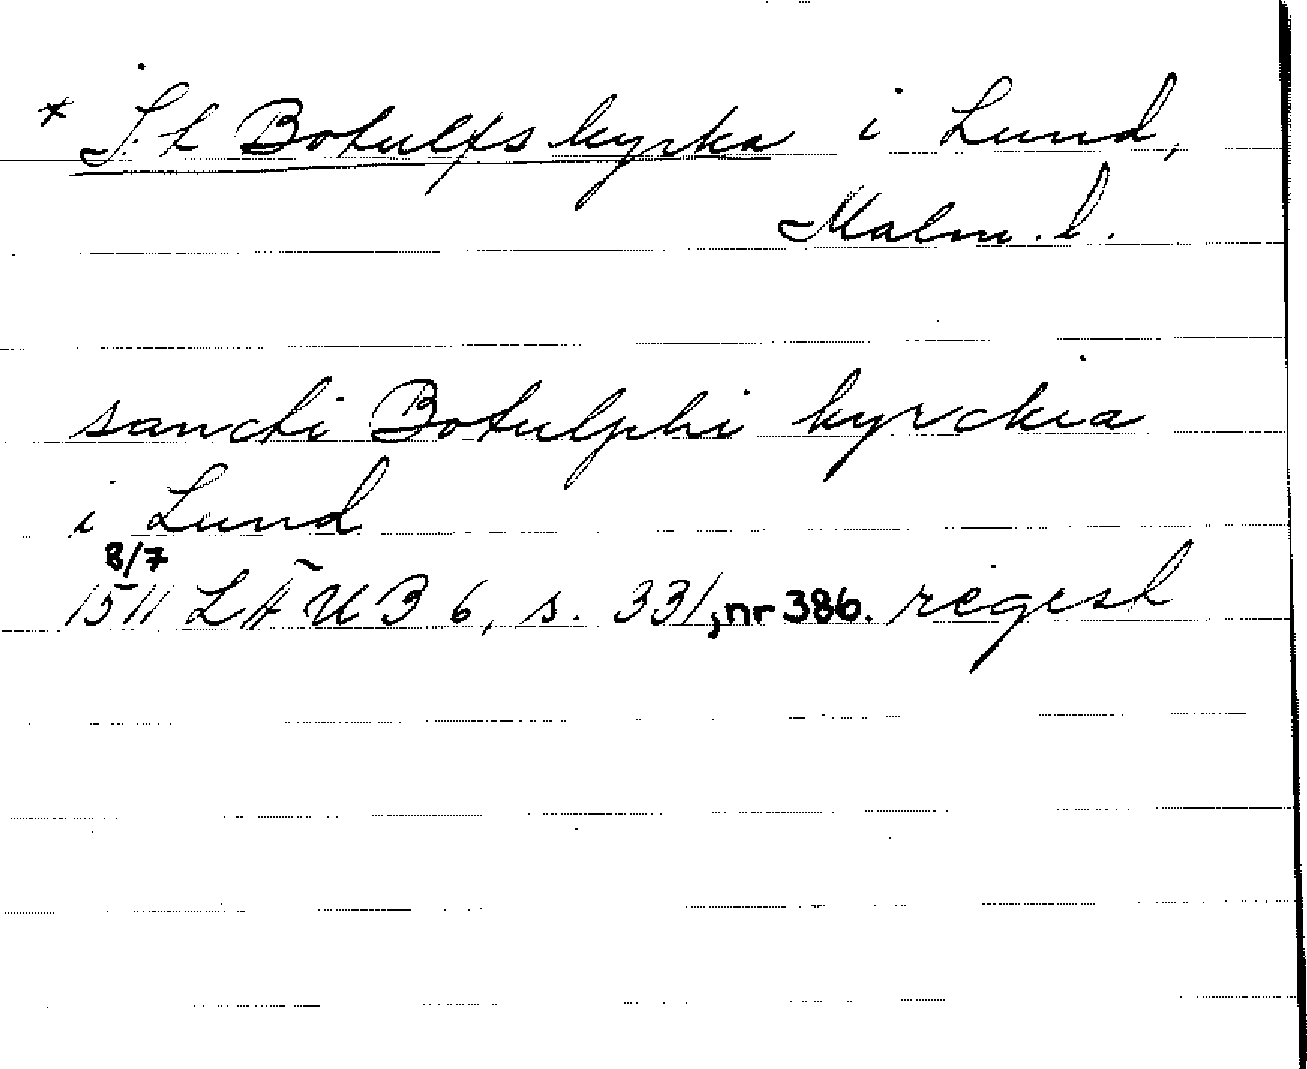 * S:t Botulfs kyrka i Lund,
Malm. l.
sancti Botulphi kyrckia
i Lund
8/7
1511 LÄUB 6, s. 331, nr 386. regest